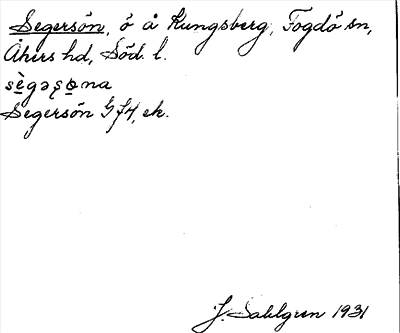 Segersön, ö å Kungsberg, Fogdö sn,
Åkers hd, Söd. l.
sègəʂøna
Segersön GfH, ek.
J. Sahlgren 1931